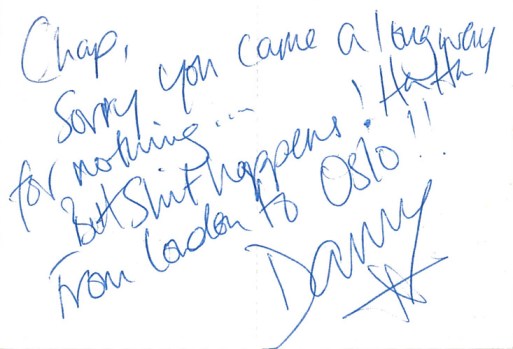 Chap,
Sorry you came a long way
for nothing...
But Shit happens! Ha Ha
From London to Oslo!!
Danny